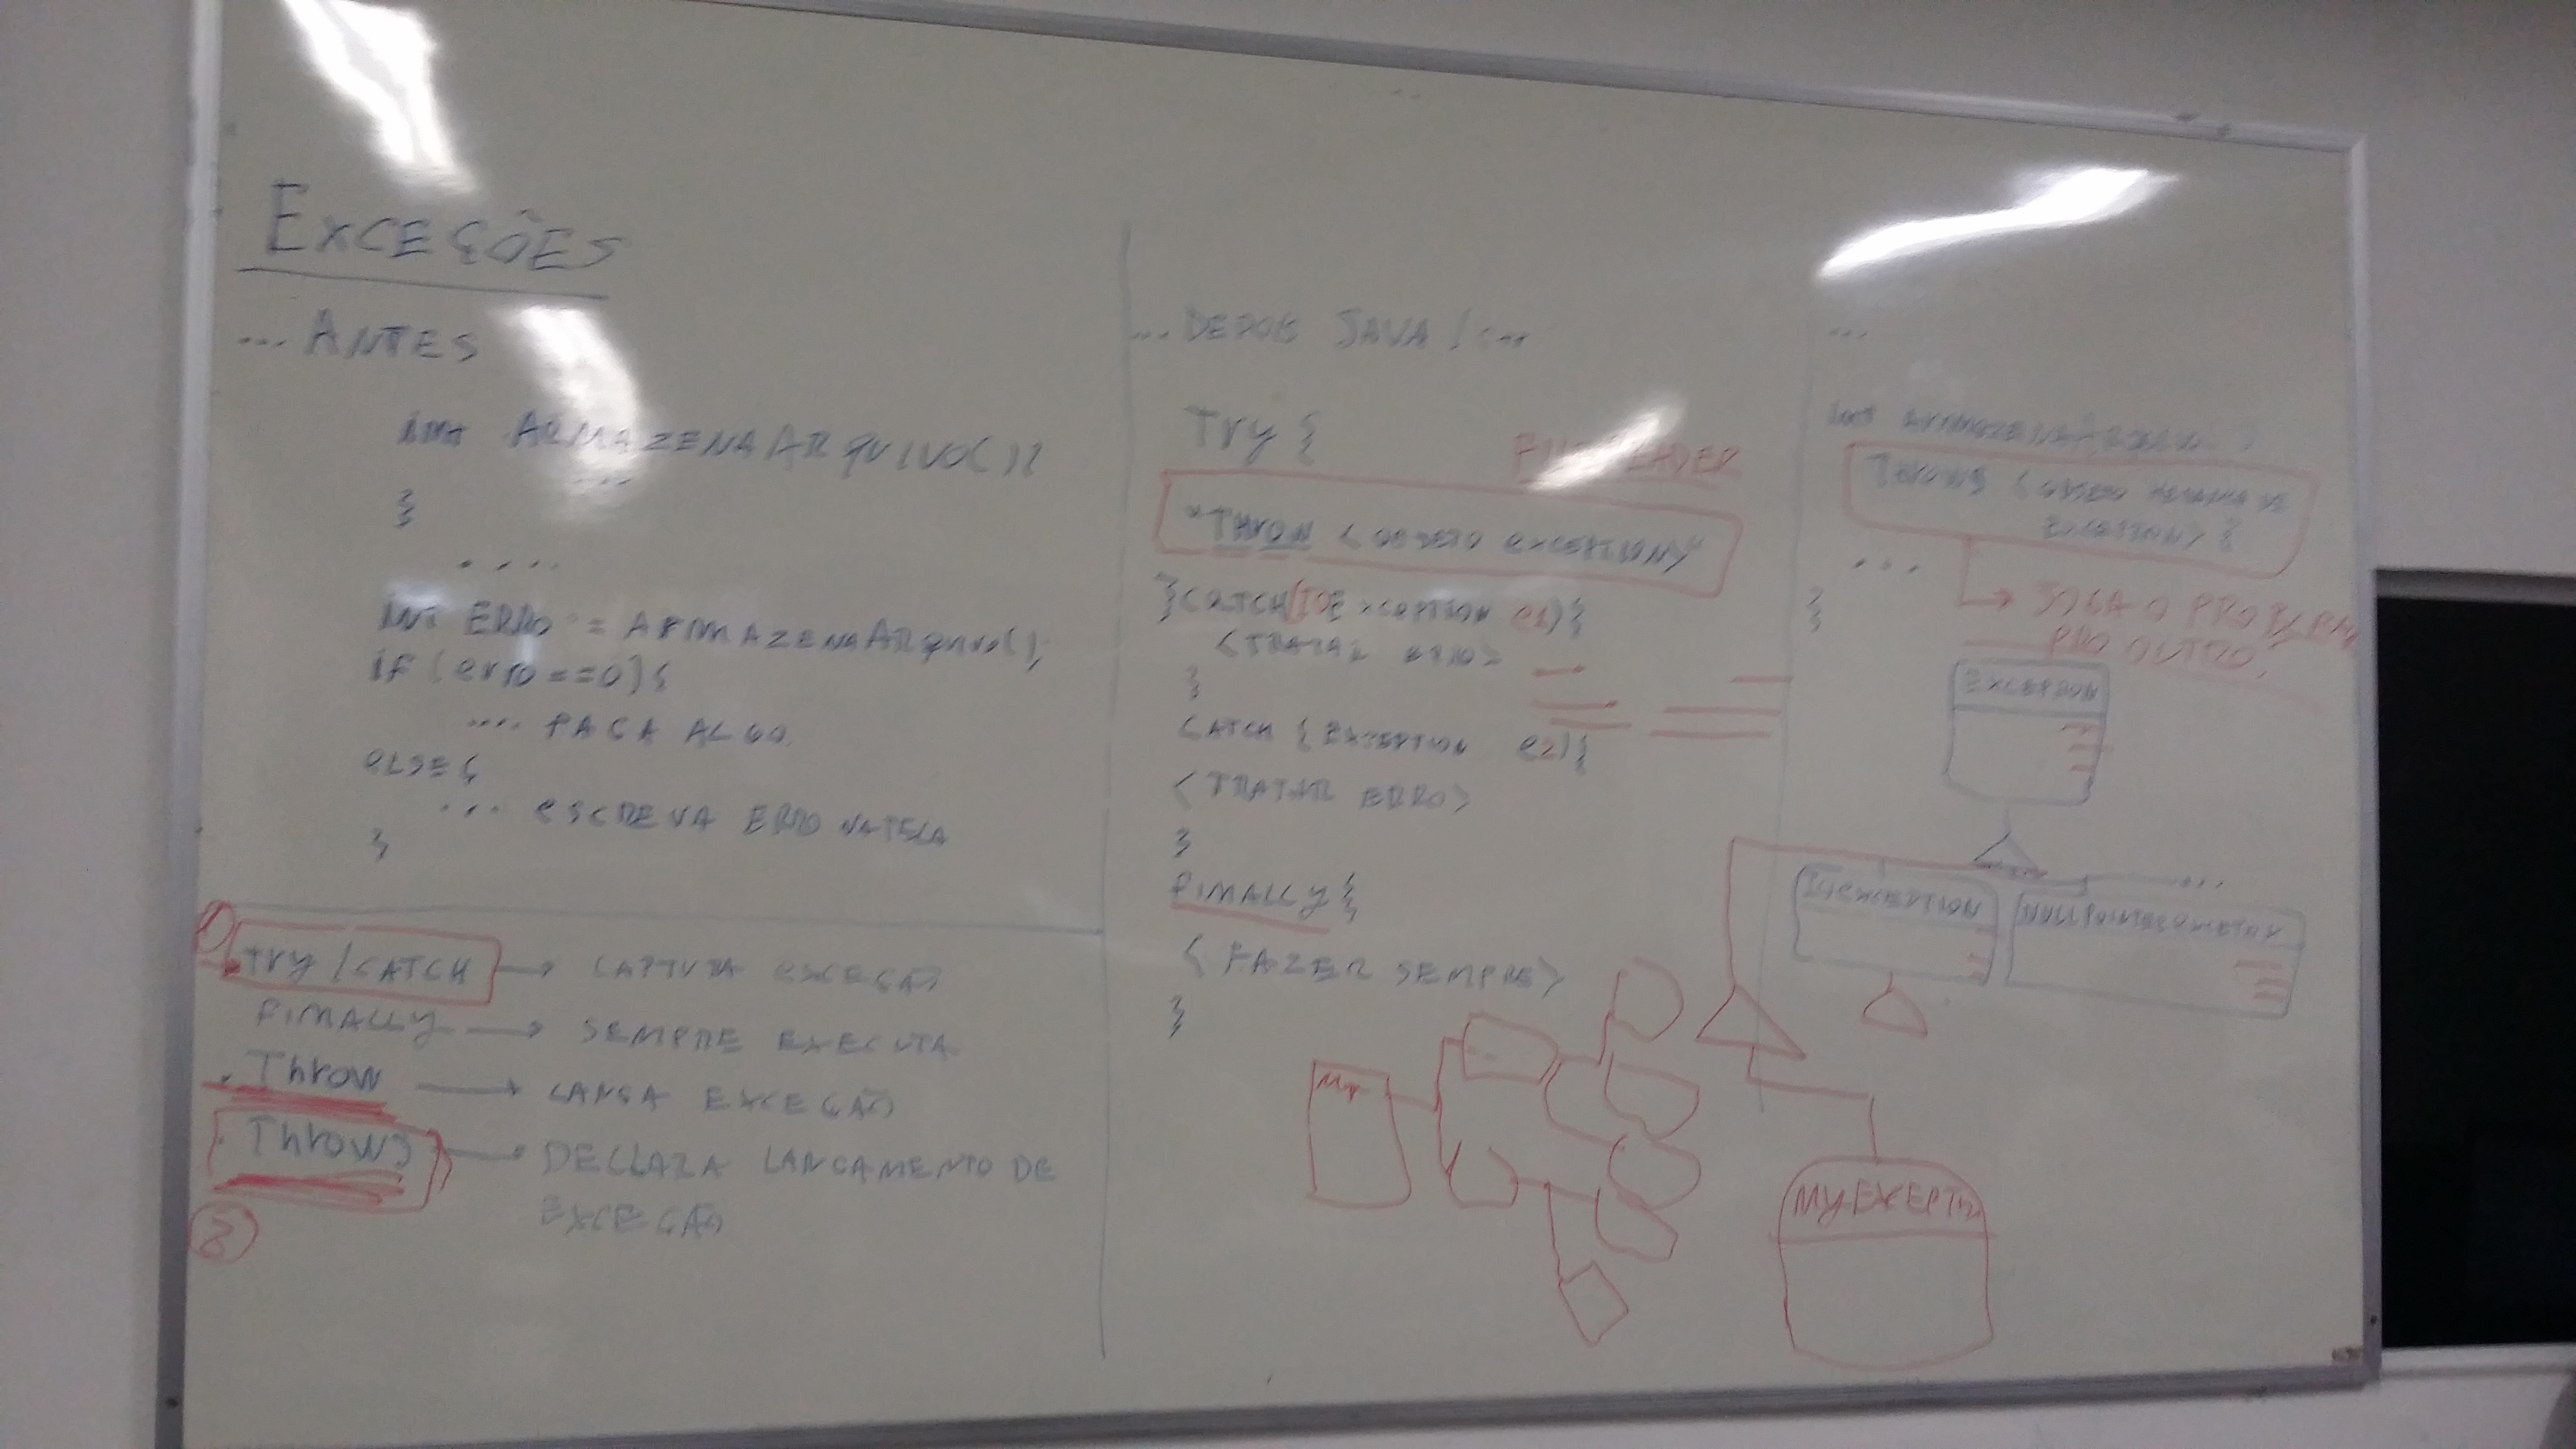 EXCEÇÕES
... ANTES
int ARMAZENAARQUIVO(){
...
}
....
int ERRO = ARMAZENAARquivo();
if (erro==0){
.... FAÇA ALGO
eLSE{
... eSCREVA ERRO NA TELA
}
1
Try / CATCH → CAPTURA EXCEÇÃO
FINALLY → SEMPRE EXECUTA
. Throw → LANÇA EXCEÇÃO
. Throws → DECLARA LANÇAMENTO DE
EXCEÇÃO
2
... DEPOIS JAVA / C++
Try {
FILEREADER
"THROW <OBJETO EXCEPTION>"
}CATCH(IOEXCEPTION e1){
<TRATAR ERRO>
}
CATCH {EXCEPTION e2){
<TRATAR ERRO>
}
FINALLY {
<FAZER SEMPRE>
}
...
int ARMAZENAARQUIVO()
Throws <OBJETO
EXCEPTION> {
...
→ JOGA O PROBLEMA
PRO OUTRO.
}
EXCEPTION
...
IOEXCEPTION
NULLPOINTEREXCEPTION
MYEXEPTION